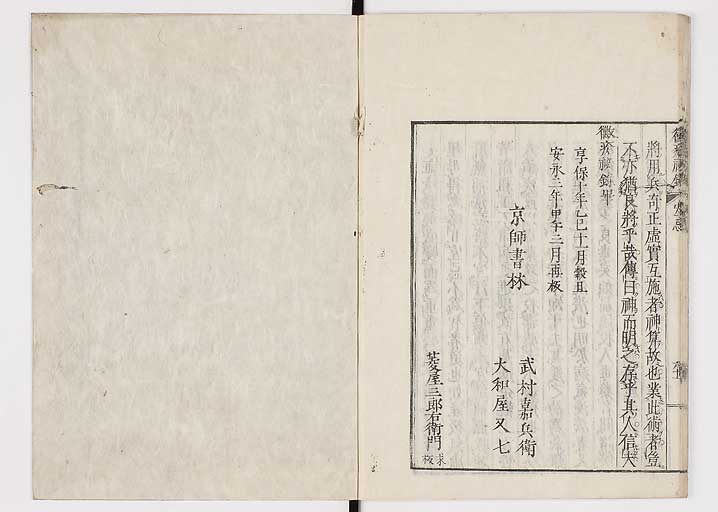 將用兵奇正虛實互施者神算故也業此術者豈
不亦猶良將乎哉傳曰神而明之存乎其人信夫
黴瘡祕錄畢
享保十年乙巳十一月穀旦
安永三年甲午二月再板
京師書林
武村嘉兵衛
大和屋又七
菱屋三郎右衛門
求板